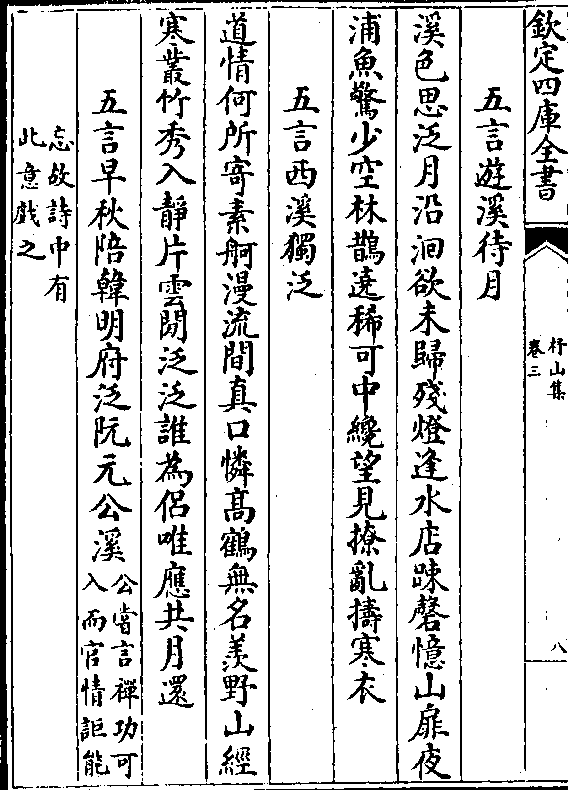 欽定四庫全書
杼山集
卷三
八
五言遊溪待月
溪色思泛月沿洄欲未歸殘燈逢水店疎磬憶山扉夜
浦魚驚少空林鵲遶稀可中纔望見撩亂擣寒衣
五言西溪獨泛
道情何所寄素舸漫流間真口憐高鶴無名羨野山經
寒叢竹秀入靜片雲閒泛泛誰為侶唯應共月還
五言早秋陪韓明府泛阮元公溪
公嘗言禪功可
入而官情詎能
忘故詩中有
此意戲之